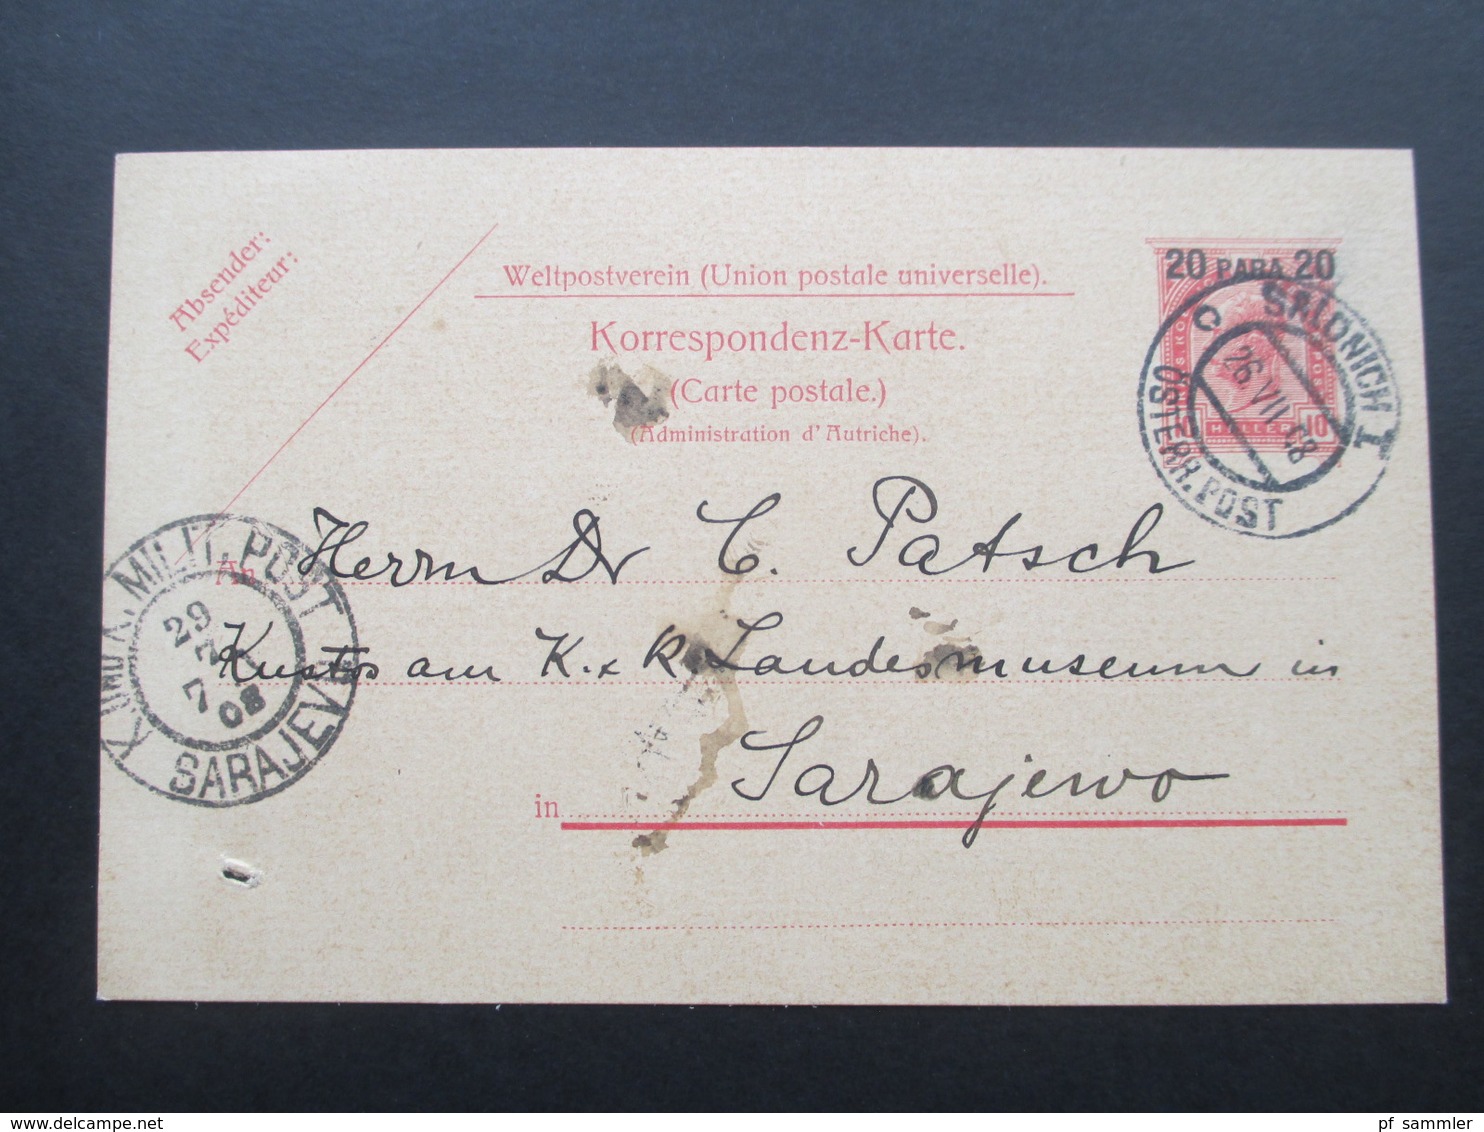 Absender:
Expéditeur:
Weltpostverein (Union postale universelle).
Korrespondenz-Karte.
(Carte postale.)
(Administration d'Autriche).
20 PARA 20
HELLER 10
SALONICH I
ÖSTERR. POST
C
26 VII 08
An Herrn Dr C. Patsch
Kustos am K. x k Landesmuseum in
in Sarajewo
K. UND K. MILIT. POST
29
7
08
SARAJEVO
delcampe.net
pf_sammler